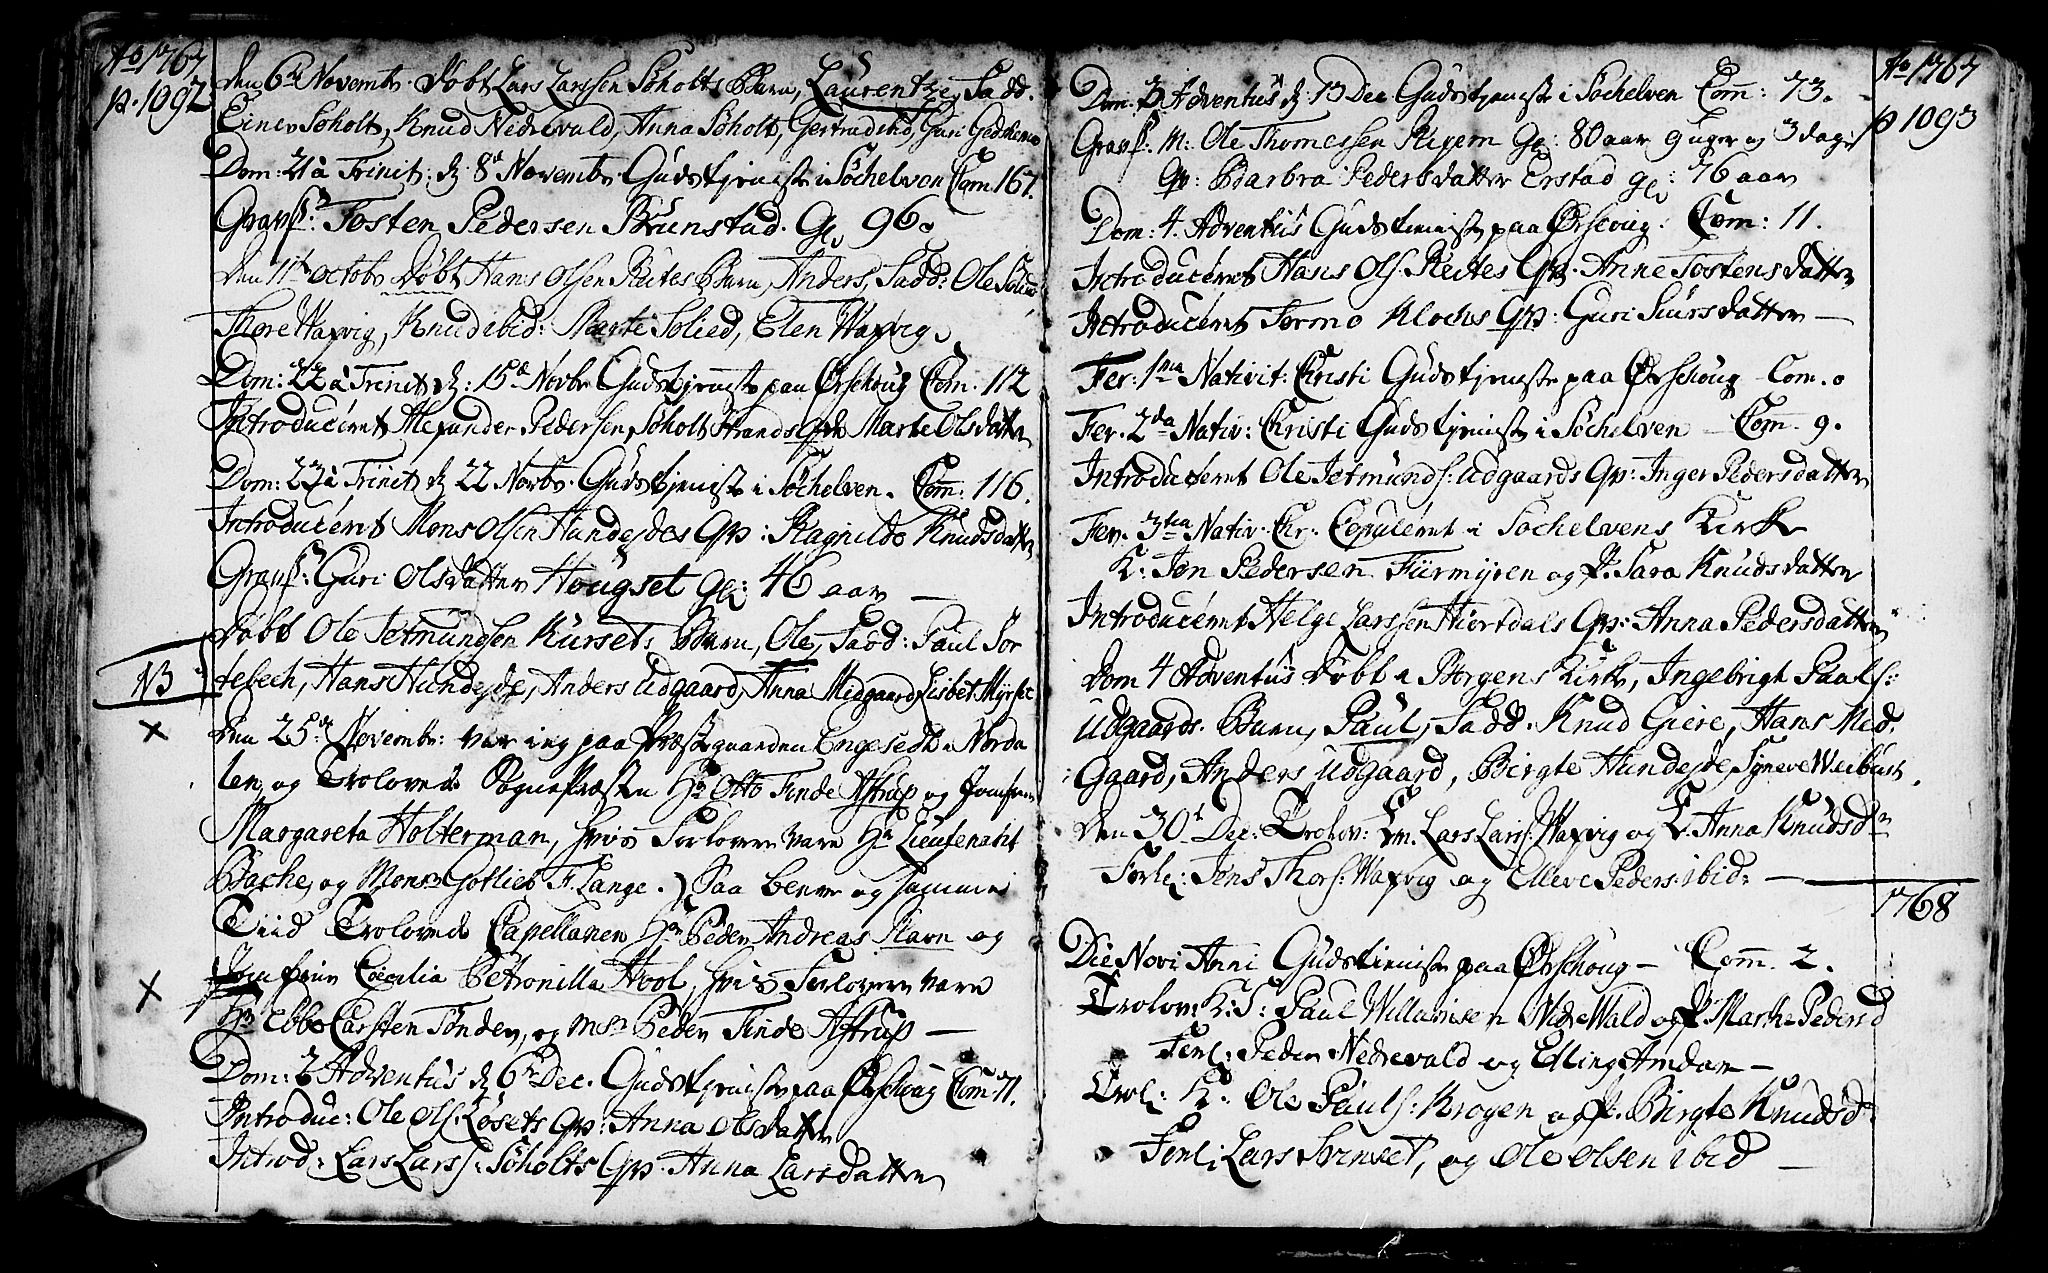 Ao 1767
p. 1092
den 6te Novembr. Døbt Lars Larssen Søholts Barn, Laurentze, Fadd.
Einer Søholt, Knud Nedrevald, Anna Søholt, Gertrud ibid, Guri
Dom: 21 à Trinit: d: 8de Novembr Gudstjeniste i Søchelven Com 167.
Gravf: Tosten Pedersen Brunstad. Gl. 96.
den 11te octobr Døbt Hans Olsen Reites Barn, Anders, Fadd: Ole
Thore Waxvig, Knud ibid: Marte Solied, Elen Waxvig.
Dom: 22 à Trinit d: 15de Novbr Gudstjeniste paa Ørschoug Com. 112
Introduceret Alexander Pedersen Søholt Strands Qv. Marte Olsdatter
Dom: 23 à Trinit d 22 Novbr. Gudstjeniste i Søchelven. Com: 116.
Introduceret Mons Olsen Hundejdes Qv: Ragnilde Knudsdatter
Gravf: Guri Olsdatter Hougset gl: 46 aar —
NB
Døbt Ole Jetmundsen Kursets Barn, Ole, Fadd: Paul For
tebech, Hans Hundejde, Anders Udgaard, Anna Midgaard, Lisbet Myrset
x
den 25de Novembr: var jeg paa Præstegaarden Engesedt i Norda
len, og Trolovede Sognepræsten Hr Otto Finde Astrup og Jomfrue
Margareta Holterman, hvis Forlovere vare Hr Lieutenant
Bache, og Monsr Gotlieb F. Lange.) Saa bem og samme
Tiid Trolovede Capellanen Hr Peder Andreas Ravn og
x
Jomfrue Cecilia Petronilla Hool, hvis Forlovere vare
Hr Ebbe Carsten Tønder, og Msr Peder Finde Astrup —
Dom: 2 Adventus d 6te Dec. Gudstjeniste paa Ørschoug Com 71.
Introduc: Ole Ols: Løsets Qv: Anna Olsdatter
Introd: Lars Lars: Søholts Qv. Anna Larsdatter
Ao 1767
p 1093
Dom. 3 Adventus d: 13 Dec Gudstjeniste i Søchelven Com: 73.
Gravf. M: Ole Thomessen Gl: 80 aar 9 uger og 3 dage
Qv: Barbra Pedersdatter Erstad gl: 76 aar
Dom: 4. Adventus Gudstjeniste paa Ørschoug. Com: 11.
Introduceret Hans Ols. Reites Qv. Anne Tostensdatter
Introduceret Tormo Kloches Qv: Guri Siursdatter —
Fer: 1ma Nativit: Christi Gudstjeniste paa Ørschoug — Com. 0
Fer. 2da Nativ: Christi Gudstjeniste i Søchelven — Com. 9.
Introduceret Ole Jetmunds: Udgaards Qv: Inger Pedersdatter
Fer. 3tia Nativ. Chr. Copuleret i Søchelvens Kirk
K: Jon Pedersen Furmyren og P. Sara Knudsdatter
Introduceret Helge Larssen Hiortdals Qv: Anna Pedersdatter
Dom 4 Adventus Døbt i Borgens Kirke, Ingebrigt Paals:
Udgaards. Barn, Paul, Fadd. Knud Giere, Hans Mid.
Gaard, Anders Udgaard, Birgte Hundejde, Synneve Weibust.
den 30t Dec: Trolov: Em. Lars Lars: Waxvig og E. Anna Knudsdr
Forl: Jens Thors: Waxvig og Elleve Peders: ibid: —
1768
Die Novi Anni Gudstjeniste paa Ørschoug — Com. 2.
Trolov: K: S: Paul Willumsen Nidrewald og P. Marthe Pedersd
Forl: Peder Nedrevald og Elling Amdam —
Trol: K: Ole Pauls: Krogen og P. Birgte Knudsd.
Forl: Lars, og Ole Olsen ibid —